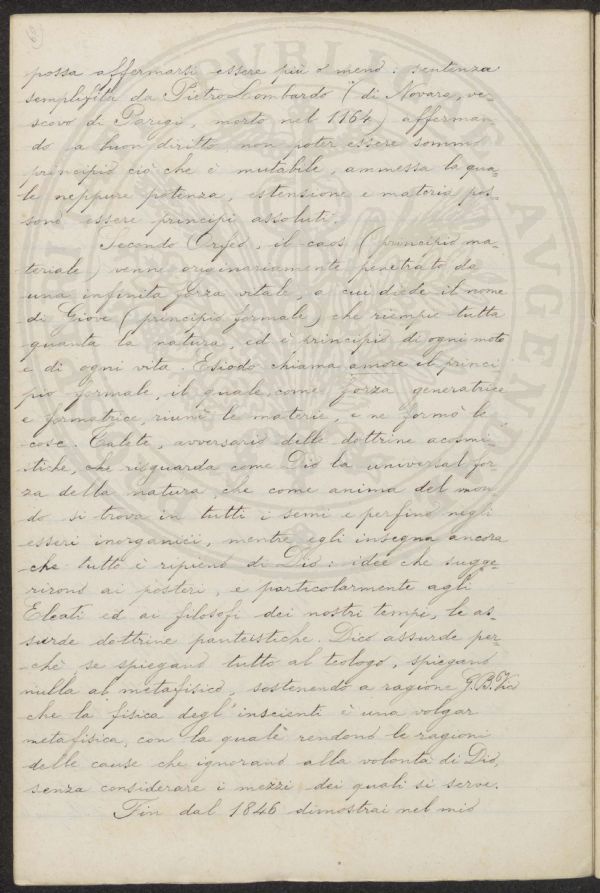 possa affermarsi essere più o meno: sentenza
semplifita da Pietro Lombardo (di Novara, ve-
scovo di Parigi, morto nel 1164) afferman-
do a buon diritto non poter essere sommo
principio ciò che è mutabile, ammessa la qua-
le neppure potenza, estensione e materia pos-
sono essere principi assoluti.
Secondo Orfeo, il caos (principio ma-
teriale) venne originariamente penetrato da
una infinita forza vitale, a cui diede il nome
di Giove (principio formale) che riempie tutta
quanta la natura, ed è principio di ogni moto
e di ogni vita. Esiodo chiama amore il princi
pio formale, il quale, come forza generatrice
e formatrice, riunì le materie, e ne formò le
cose. Talete, avversario delle dottrine acosmi-
stiche, che risguarda come Dio la universal for
za della natura, che come anima del mon-
do si trova in tutti i semi e perfino negli
esseri inorganici, mentre egli insegna ancora
che tutto è ripieno di Dio: idee che sugge-
rirono ai posteri, e particolarmente agli
Eleati ed ai filosofi dei nostri tempi, le as-
surde dottrine panteistiche. Dico assurde per-
chè se spiegano tutto al teologo, spiegano
nulla al metafisico, sostenendo a ragione G. B. Vico
che la fisica degl'inscienti è una volgar
metafisica, con la quale rendono le ragioni
delle cause che ignorano alla volontà di Dio,
senza considerare i mezzi dei quali si serve.
Fin dal 1846 dimostrai nel mio